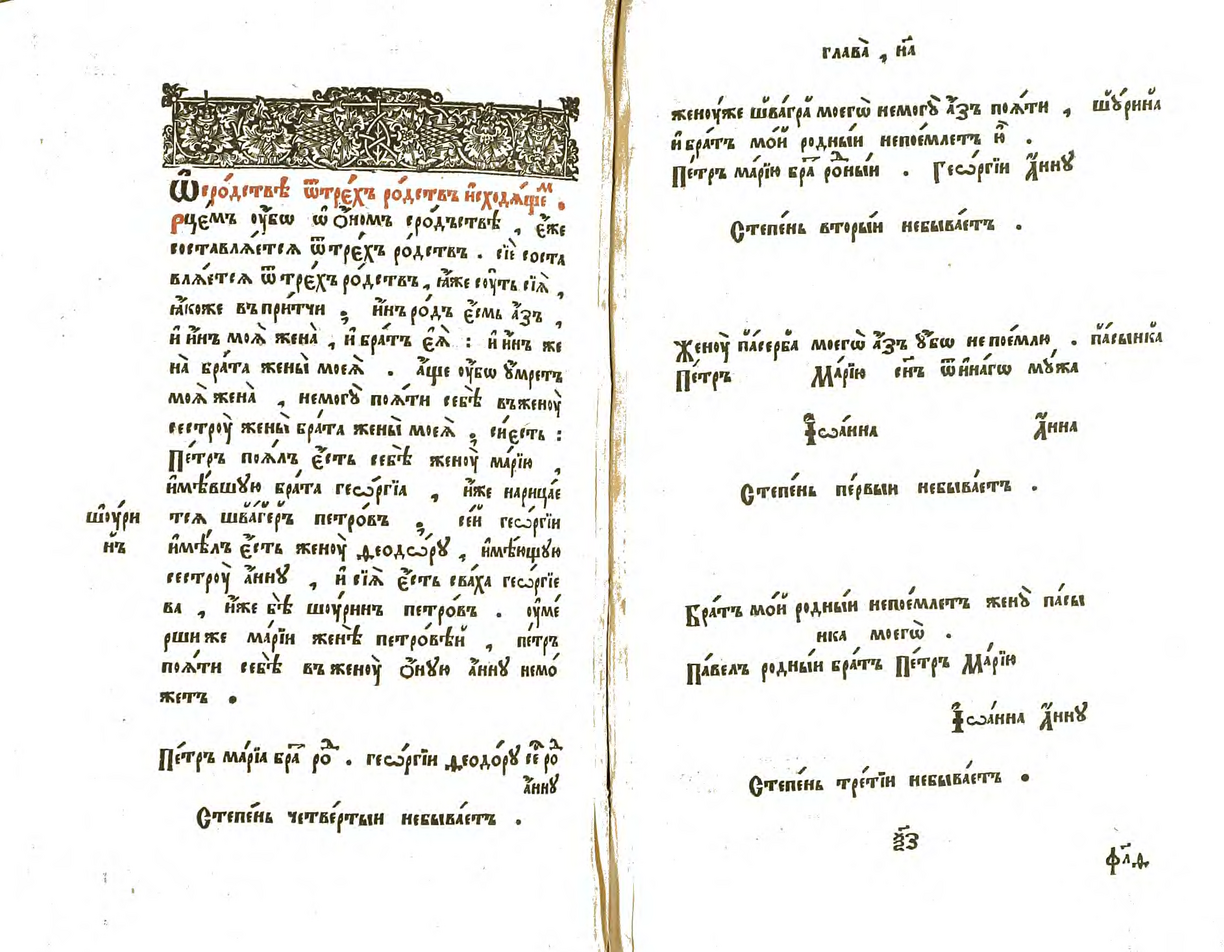 Ѡ сродствѣ ѿ трехъ родствъ исходящемъ .
Рцемъ оубѡ ѡ ѻномъ сродъствѣ , єже
составляется ѿ трехъ родствъ . сїе соста
вляется ѿ трехъ родствъ , ꙗже соуть сїѧ ,
ꙗкоже въ притчи ; инъ родъ єсмь азъ ,
и инъ моѧ жена , и братъ єѧ : и инъ же
на брата жены моеѧ . аще оубѡ ѹмретъ
моѧ жена , немогу поѧти себѣ въ женоу
сестроу жены брата жены моеѧ , сиєсть :
Петръ поѧлъ єсть себѣ женоу марїю ,
имѣвшую брата геѡргїа , иже нарицае
тсѧ швагеръ петровъ , сей геѡргїи
имѣлъ єсть женоу ѳеодѡру , имѣющую
сестроу анну , и сїѧ єсть сваха геѡргїе
ва , иже бѣ шоуринъ петровъ . оуме
рши же марїи женѣ петровѣй , петръ
поѧти себѣ въ женоу ѻную анну немо
жетъ .
шоури
нъ
Петръ марїа бра ро . геѡргїи ѳеодору се ро
анну
Степень четвертыи небываетъ .
глава , н҃а
женоу же швагра моегѡ немогу азъ поѧти , шурина
и братъ мой родныи непоемлетъ ю .
Петръ марїю бра роныи . Геѡргїи Анну
Степень вторыи небываетъ .
Женоу пасерба моегѡ азъ убѡ непоемлю . пасынка
Петръ Марїю сн҃ъ ѿ инагѡ мужа
Іѡанна Анна
Степень первыи небываетъ .
Братъ мой родныи непоемлетъ жену пасы
нка моегѡ .
Павелъ родныи братъ Петръ Марїю
Іѡанна Анну
Степень третїи небываетъ .
фл҃д